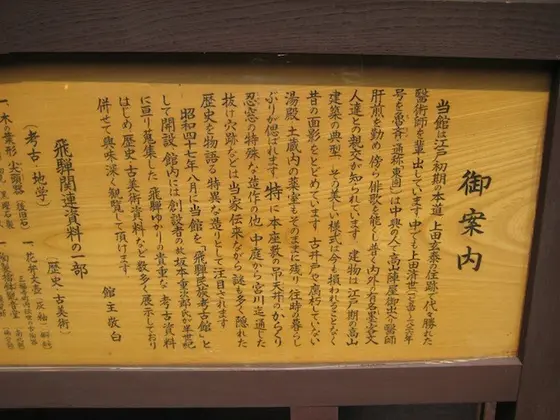 御案内
当館は江戸初期の本道 上田玄泰の住跡で代々勝れた
醫術師を輩出しています 中でも上田済世
号を魯斎 通称東圃 は中興の人で高山陣屋御出入り醫師
肝煎を勤め 傍ら俳歌を能くし普く内外の有名墨客文
人達との親交が知られています 建物は江戸期の高山
建築の典型 その美しい様式は今も損われることなく
昔の面影をとどめています 古井戸や腐朽していない
湯殿 土蔵内の薬室もそのままに残り 往時の暮らし
ぶりが偲ばれます 特に本座敷の吊天井のからくり
忍窓の特殊な造作の他 中庭から宮川迄通した
抜け穴跡などは当家伝来ながら謎も多く隠れた
歴史を物語る 特異な造りとして注目されます
昭和四十七年八月に当館を「飛騨民俗考古館」と
して開設 館内には創設者の故坂本重太郎氏が半世紀
に亘り蒐集した 飛騨ゆかりの貴重な 考古資料
はじめ 歴史・古美術資料など数多く展示しており
併せて興味深く観覧して頂けます
館主敬白
飛騨関連資料の一部
(考古・地学)
(歴史・古美術)
一、木の葉形
一、花弁文壺